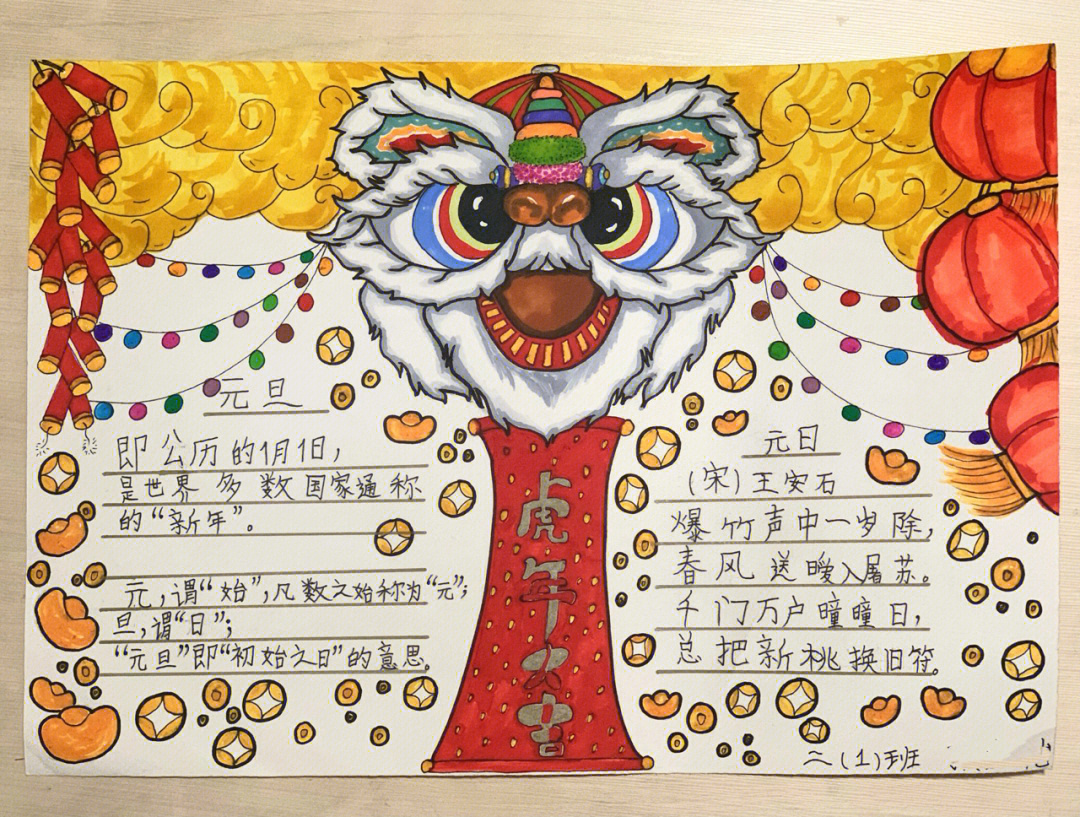 元旦
即公历的1月1日,
是世界多数国家通称
的“新年”。
元,谓“始”,凡数之始称为“元”;
旦,谓“日”;
“元旦”即“初始之日”的意思。
虎年大吉
元日
(宋)王安石
爆竹声中一岁除,
春风送暖入屠苏。
千门万户曈曈日,
总把新桃换旧符。
二(1)班